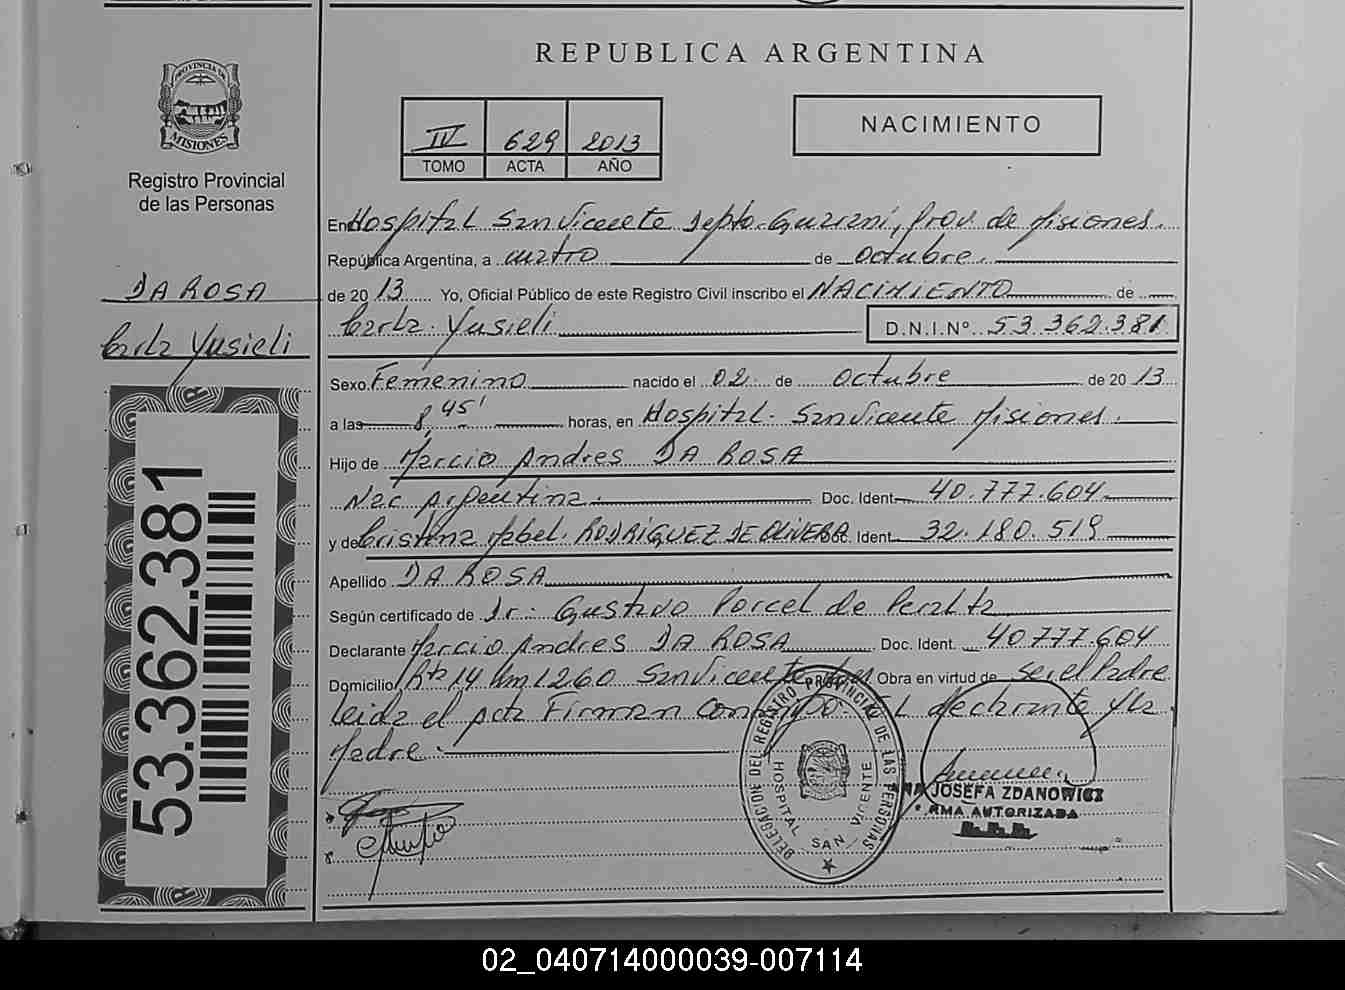 REPUBLICA ARGENTINA
PROVINCIA DE
MISIONES
Registro Provincial
de las Personas
DA ROSA
Carla Yusieli
53.362.381
IV 629 2013
TOMO ACTA AÑO
NACIMIENTO
En Hospital San Vicente Depto. Guarani, Prov. de Misiones.
República Argentina, a cuatro de octubre
de 2013 Yo, Oficial Público de este Registro Civil inscribo el NACIMIENTO de
Carla Yusieli D.N.I.Nº 53.362.381
Sexo Femenino nacido el 02 de octubre de 2013
a las 8,45' horas, en Hospital San Vicente Misiones.
Hijo de Marcio Andres DA ROSA
Nac Argentina. Doc. Ident 40.777.604
y de Cristina Mabel. RODRIGUEZ DE OLIVERA Doc. Ident. 32.180.519
Apellido DA ROSA
Según certificado de Dr. Gustavo Porcel de Peralta
Declarante Marcio Andres DA ROSA Doc. Ident. 40777.604
Domicilio Rta 14 km 1260 San Vicente Obra en virtud de ser el Padre
Leida el Acta Firman El declarante y la
Madre.
DELEGACION DEL REGISTRO PROVINCIAL DE LAS PERSONAS
HOSPITAL SAN VICENTE
JOSEFA ZDANOWICZ
FIRMA AUTORIZADA
02_040714000039-007114